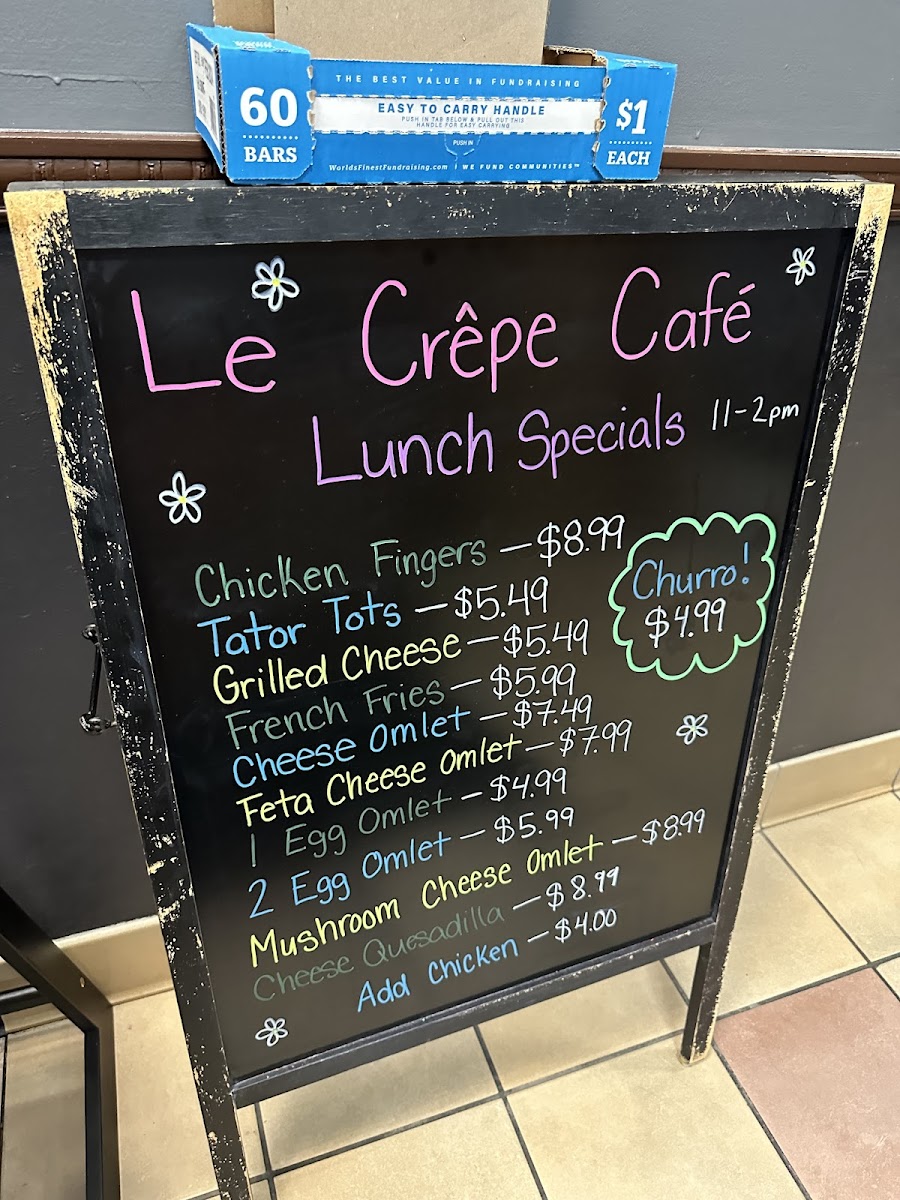 THE BEST VALUE IN FUNDRAISING
60
BARS
EASY TO CARRY HANDLE
PUSH IN TAB BELOW & PULL OUT THIS
HANDLE FOR EASY CARRYING
PUSH IN
$1
EACH
WorldsFinestFundraising.com | WE FUND COMMUNITIES™
Le Crêpe Café
Lunch Specials 11-2pm
Chicken Fingers - $8.99
Tator Tots - $5.49
Grilled Cheese - $5.49
French Fries - $5.99
Cheese Omlet - $7.49
Feta Cheese Omlet - $7.99
1 Egg Omlet - $4.99
2 Egg Omlet - $5.99
Mushroom Cheese Omlet - $8.99
Cheese Quesadilla - $8.99
Add Chicken - $4.00
Churro!
$4.99